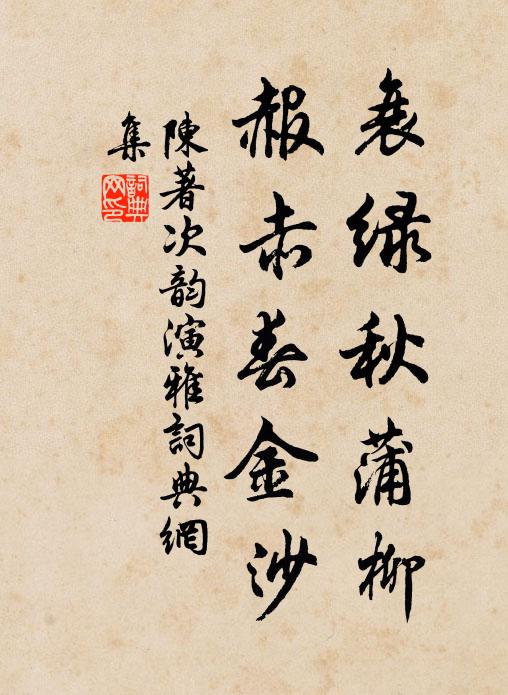 衰绿秋蒲柳
赧赤春金沙
陳著次韵演雅詞典網
集
詞典網印